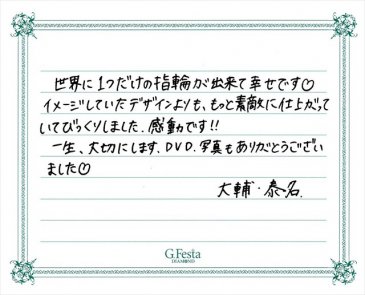 世界に1つだけの指輪が出来て幸せです♡
イメージしていたデザインよりも、もっと素敵に仕上がって
いてびっくりしました。感動です!!
一生、大切にします。DVD、写真もありがとうござい
ました♡
大輔・泰名.
G.Festa
DIAMOND